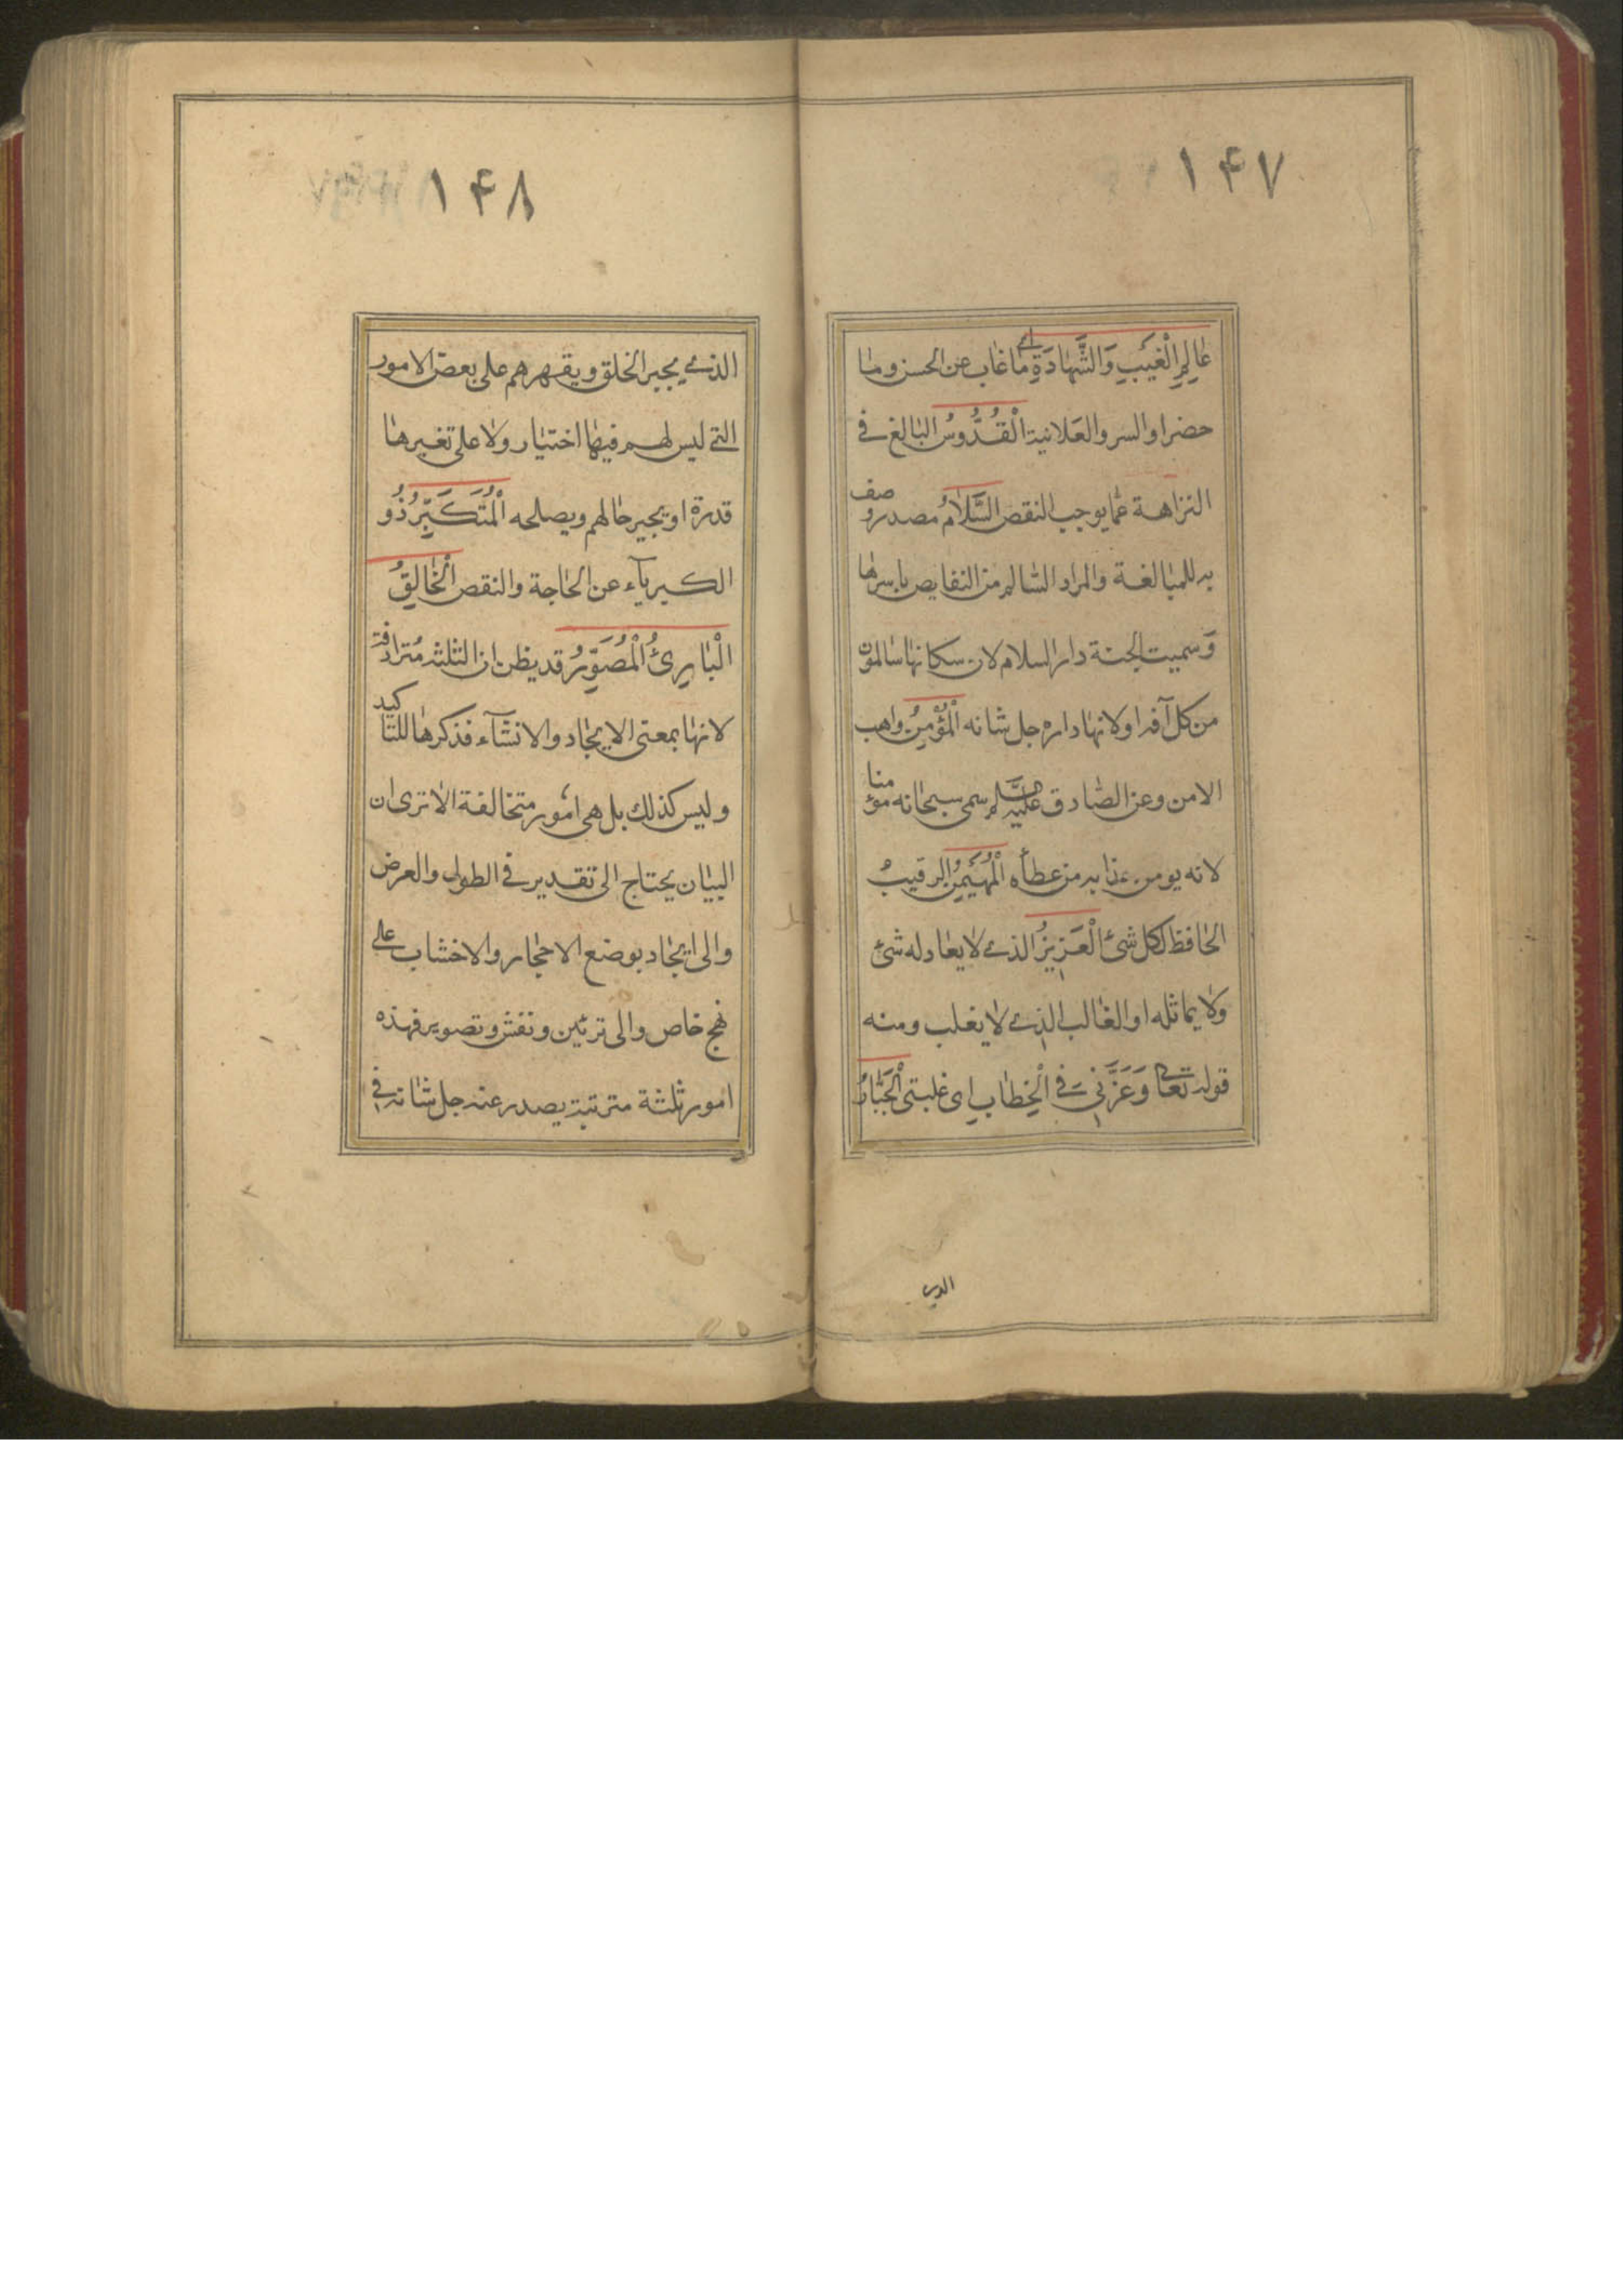 ۱۴۷
عٰالِمِ الْغَيْبِ وَالشَّهٰادَةِ اى مٰا غٰاب عن الحسن ومٰا
حضر او السر والعَلانية الْقُدُّوسُ البٰالغ فى
النزاهة عمّا يوجب النقص السَّلٰامُ مصدر وصف
به للمبٰالغة والمراد السّٰالم من النقايص باسرهٰا
وَسميت الجنة دار السلام لان سكانهٰا سٰالمون
من كل آفة او لانهٰا داره جل شانه الْمُؤْمِنُ واهب
الامن وعن الصّٰادق عليه السّلم سمى سبحٰانه مؤمنا
لانه يومن عذابه من عطاه الْمُهَيْمِنُ الرقيبُ
الحٰافظ لكل شئ الْعَزيزُ الذى لا يعٰادله شئ
ولا يماثله او الغٰالب الذى لا يغلب ومنه
قوله تعٰالى وَعَزَّنى فى الْخِطٰابِ اى غلبتى الْجَبّٰارُ
الذى
۱۴۸
الذى يجبر الخلق ويقهرهم على بعض الامور
التى ليس لهم فيهٰا اختيٰار ولا على تغيرهٰا
قدرة او يجبر حٰالهم ويصلحه الْمُتَكَبِّرُ ذُو
الكبريآء عن الحٰاجة والنقص الْخٰالِقُ
الْبٰارِئُ الْمُصَوِّرُ قد يظن ان الثلثه مُترادفة
لانهٰا بمعنى الايجٰاد والانشآء فذكرهٰا للتٰاكيد
وليس كذلك بل هى امُور متخالفة الاٰ ترى ان
البيٰان يحتٰاج الى تقدير فى الطول والعرض
والى ايجٰاد بوضع الاحجٰار والاخشاب على
نهج خاص والى تزئين ونقش وتصوير فهذه
امور ثلثة مترتبة يصدر عنه جل شٰانه فى